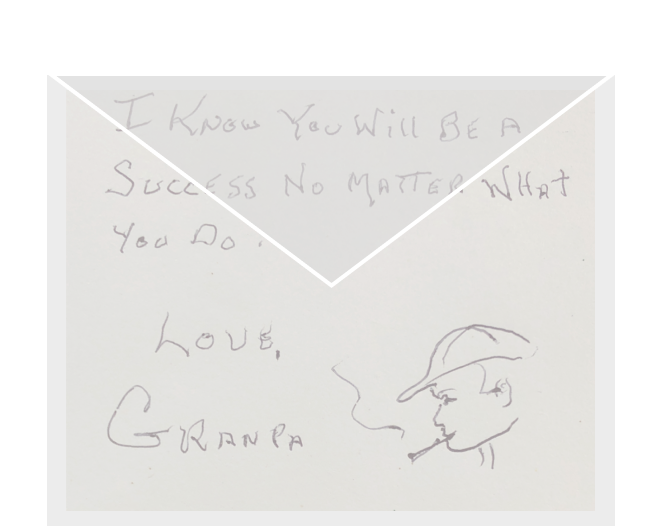 I Know You Will BE A
SUCCESS No MATTER WHAT
You Do.
LOVE,
GRANPA